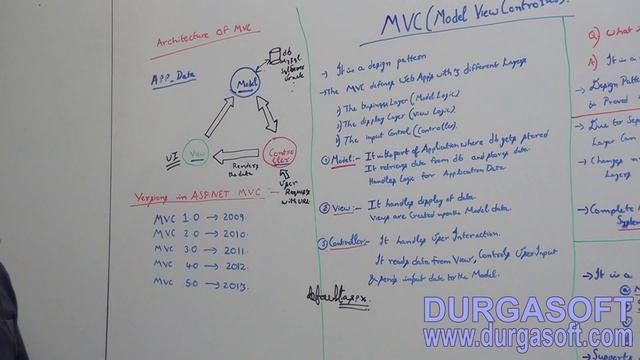 Architecture of MVC
APP_Data
db
mysql
oracle
Model
UI
View
Controller
Render
the data
User
Request
with URL
Versions in ASP.NET MVC :-
MVC 1.0 → 2009.
MVC 2.0 → 2010.
MVC 3.0 → 2011.
MVC 4.0 → 2012.
MVC 5.0 → 2013.
MVC (Model View Controller).
→ It is a design pattern
→ The MVC defines Web Apps with 3 different Layers
1) The business Layer (Model Logic)
2) The display Layer (View Logic)
3) The input Control (Controller).
① Model:- It is the part of Application where db gets stored
It retrieves data from db and stores data
Handles Logic for Application Data
② View:- It handles display of data
Views are Created upon the Model data
③ Controller:- It handles User Interaction.
It reads data from View, Controls User Input
& sends input data to the Model.
default.aspx.
Q) What i
A) It is a
→ Design Patte
is Proved
→ Due to Sep
Layer Can
→ Changes
Layer
→ Complete
System
→ It is a
→ Supports
DURGASOFT
www.durgasoft.com